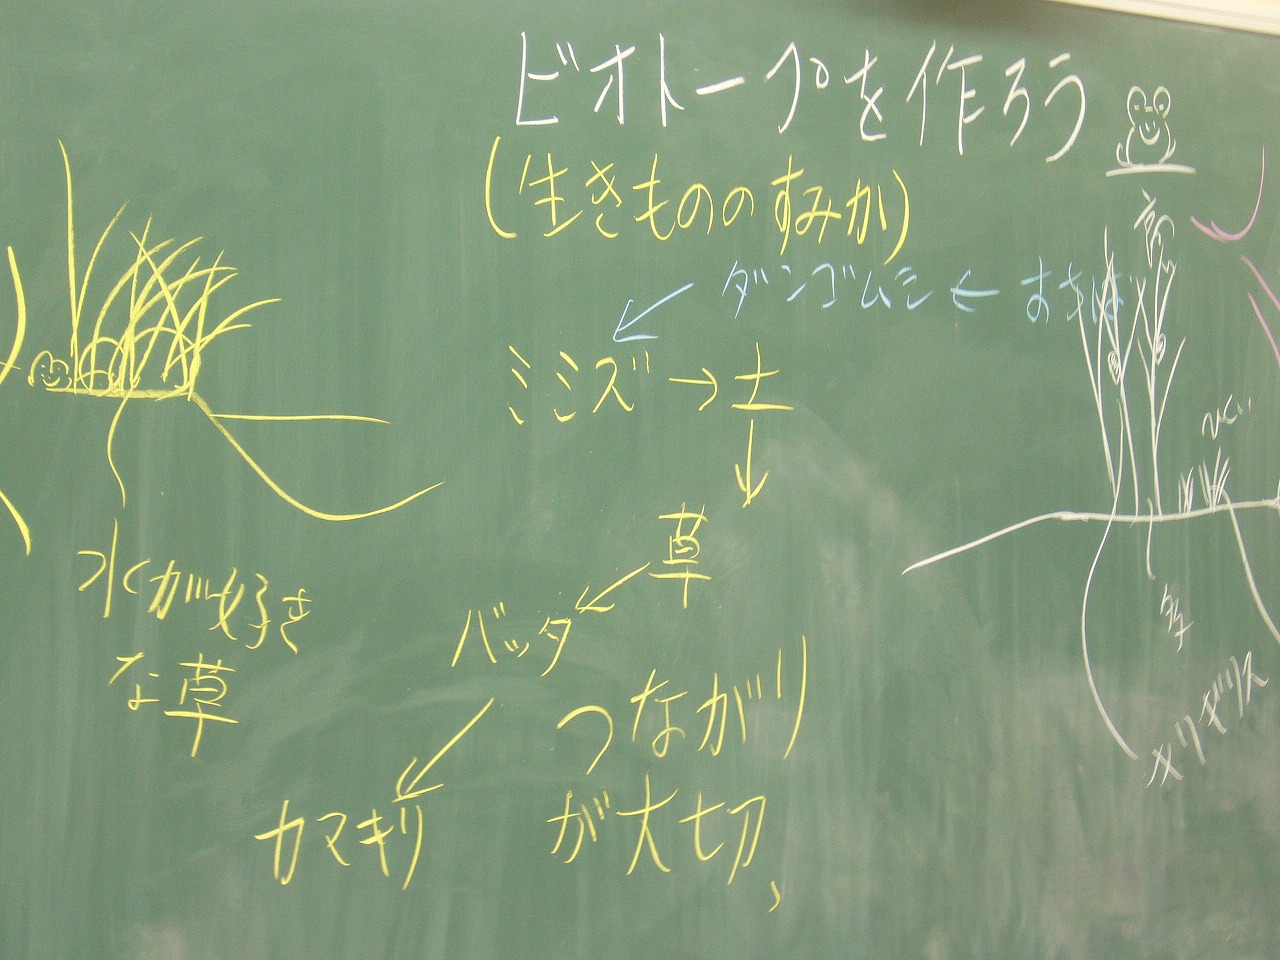 ビオトープを作ろう
(生きもののすみか)
ダンゴムシ ← おちば
ミミズ → 土
草
バッタ
カマキリ
つながり
が大切、
水が好き
な草
高い
メリギリス